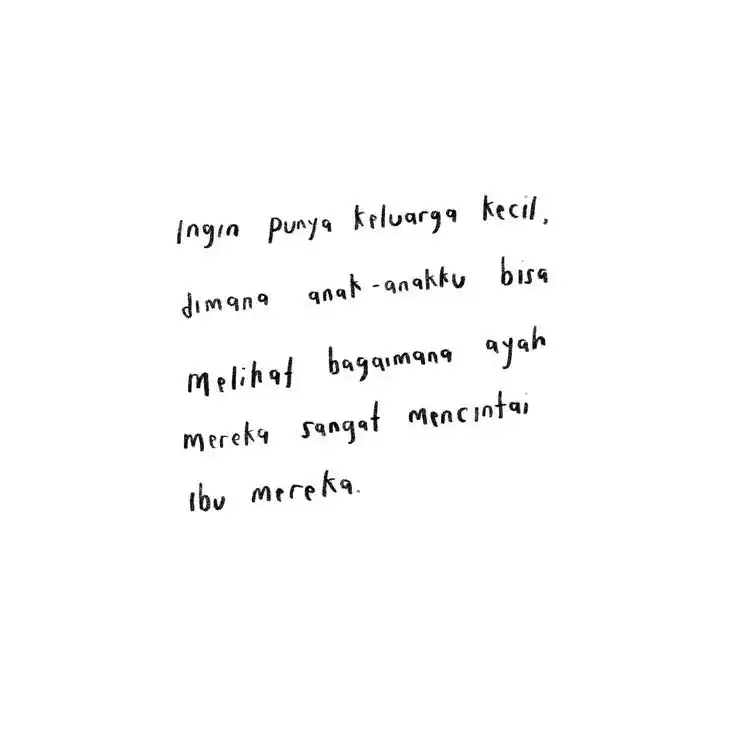 Ingin punya keluarga kecil,
dimana anak-anakku bisa
Melihat bagaimana ayah
mereka sangat mencintai
ibu mereka.